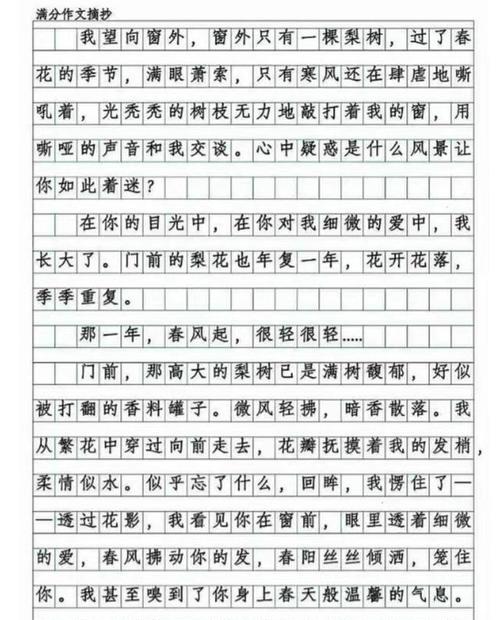 满分作文摘抄
我望向窗外，窗外只有一棵梨树，过了春
花的季节，满眼萧索，只有寒风还在肆虐地嘶
吼着，光秃秃的树枝无力地敲打着我的窗，用
嘶哑的声音和我交谈。心中疑惑是什么风景让
你如此着迷？
在你的目光中，在你对我细微的爱中，我
长大了。门前的梨花也年复一年，花开花落，
季季重复。
那一年，春风起，很轻很轻.....
门前，那高大的梨树已是满树馥郁，好似
被打翻的香料罐子。微风轻拂，暗香散落。我
从繁花中穿过向前走去，花瓣抚摸着我的发梢，
柔情似水。似乎忘了什么，回眸，我愣住了—
—透过花影，我看见你在窗前，眼里透着细微
的爱，春风拂动你的发，春阳丝丝倾洒，笼住
你。我甚至嗅到了你身上春天般温馨的气息。